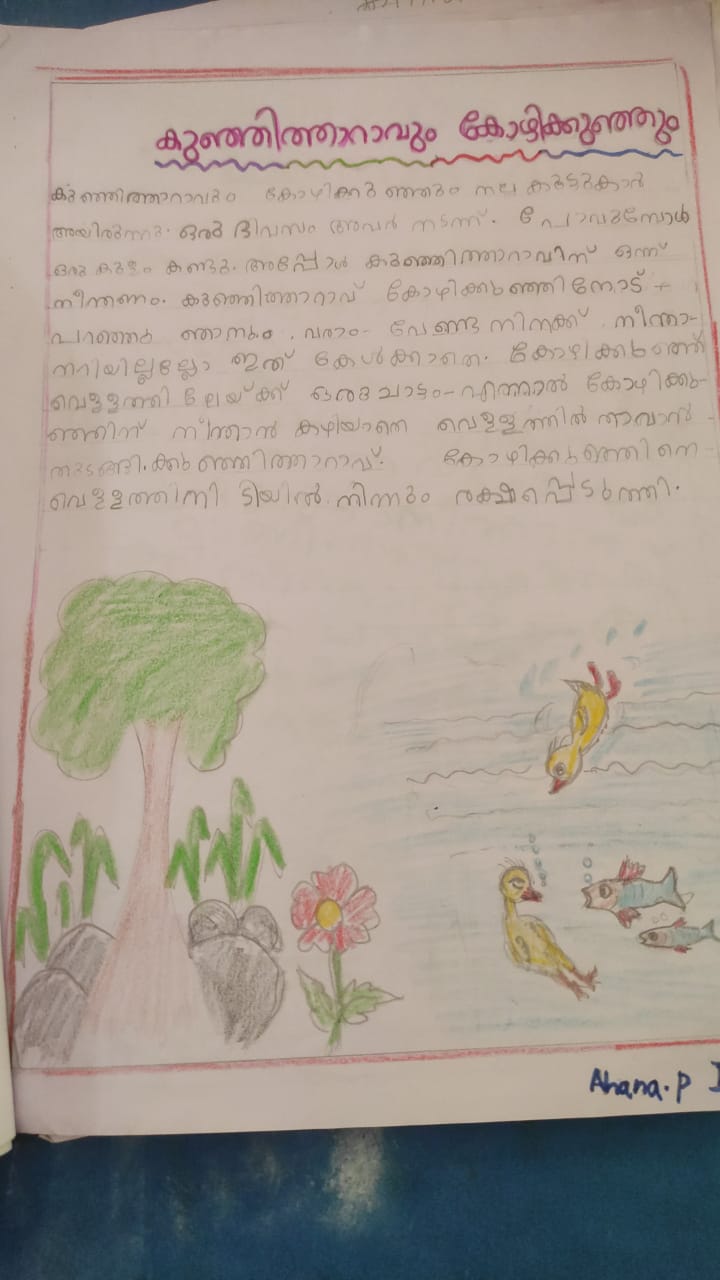 കുഞ്ഞിത്താറാവും കോഴിക്കുഞ്ഞും
കുഞ്ഞിത്താറാവും കോഴിക്കുഞ്ഞും നല്ല കൂട്ടുകാർ
അയിരുന്നു. ഒരു ദിവസം അവർ നടന്ന്. പോവുമ്പോൾ
ഒരു കുളം കണ്ടു. അപ്പോൾ കുഞ്ഞിത്താറാവിന് ഒന്ന്
നീന്തണം. കുഞ്ഞിത്താറാവ് കോഴിക്കുഞ്ഞിനോട്
പറഞ്ഞു ഞാനും വരാം- വേണ്ട നിനക്ക് നീന്താ-
നറിയില്ലല്ലോ ഇത് കേൾക്കാതെ. കോഴിക്കുഞ്ഞ്
വെള്ളത്തി ലേയ്ക്ക് ഒരു ചാട്ടം- എന്നാൽ കോഴിക്കു-
ഞ്ഞിന് നീന്താൻ കഴിയാതെ വെള്ളത്തിൽ താവാൻ
തുടങ്ങി. കുഞ്ഞിത്താറാവ്. കോഴിക്കുഞ്ഞിനെ-
വെള്ളത്തിനി ടിയിൽ നിന്നും രക്ഷപ്പെടുത്തി.
Ahana. P